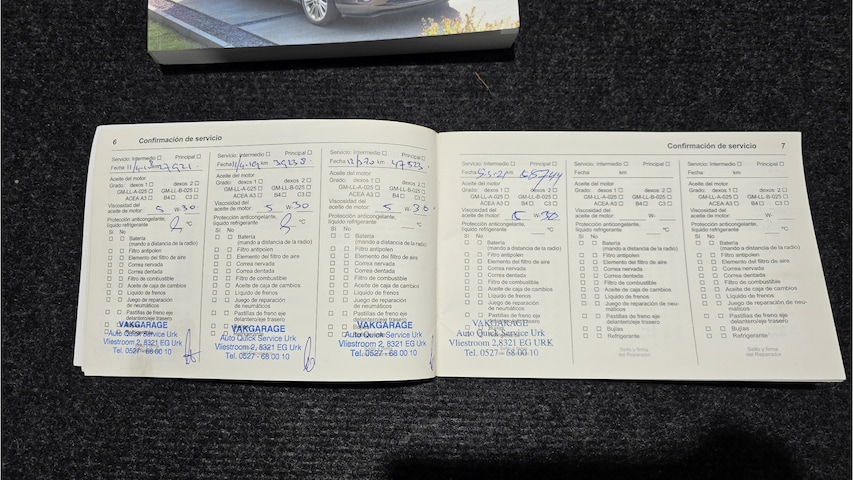 6 Confirmación de servicio
Servicio: Intermedio ☐ Principal ☐
Fecha km
Aceite del motor
Grado: dexos 1 ☐ dexos 2 ☐
GM-LL-A-025 ☐ GM-LL-B-025 ☐
ACEA A3 ☐ B4 ☐ C3 ☐
Viscosidad del
aceite de motor: 5 W- 30
Protección anticongelante,
líquido refrigerante °C
Sí No
☐ ☐ Batería
(mando a distancia de la radio)
☐ ☐ Filtro antipolen
☐ ☐ Elemento del filtro de aire
☐ ☐ Correa nervada
☐ ☐ Correa dentada
☐ ☐ Filtro de combustible
☐ ☐ Aceite de caja de cambios
☐ ☐ Líquido de frenos
☐ ☐ Juego de reparación
de neumáticos
☐ ☐ Pastillas de freno eje
delantero/eje trasero
VAKGARAGE
Auto Quick Service Urk
Vliestroom 2, 8321 EG Urk
Tel. 0527 - 68 00 10
Servicio: Intermedio ☐ Principal ☐
Fecha km 39238
Aceite del motor
Grado: dexos 1 ☐ dexos 2 ☐
GM-LL-A-025 ☐ GM-LL-B-025 ☐
ACEA A3 ☐ B4 ☐ C3 ☐
Viscosidad del
aceite de motor: 5 W- 30
Protección anticongelante,
líquido refrigerante °C
Sí No
☐ ☐ Batería
(mando a distancia de la radio)
☐ ☐ Filtro antipolen
☐ ☐ Elemento del filtro de aire
☐ ☐ Correa nervada
☐ ☐ Correa dentada
☐ ☐ Filtro de combustible
☐ ☐ Aceite de caja de cambios
☐ ☐ Líquido de frenos
☐ ☐ Juego de reparación
de neumáticos
☐ ☐ Pastillas de freno eje
delantero/eje trasero
VAKGARAGE
Auto Quick Service Urk
Vliestroom 2, 8321 EG Urk
Tel. 0527 - 68 00 10
Servicio: Intermedio ☐ Principal ☐
Fecha km 47523
Aceite del motor
Grado: dexos 1 ☐ dexos 2 ☐
GM-LL-A-025 ☐ GM-LL-B-025 ☐
ACEA A3 ☐ B4 ☐ C3 ☐
Viscosidad del
aceite de motor: 5 W- 30
Protección anticongelante,
líquido refrigerante °C
Sí No
☐ ☐ Batería
(mando a distancia de la radio)
☐ ☐ Filtro antipolen
☐ ☐ Elemento del filtro de aire
☐ ☐ Correa nervada
☐ ☐ Correa dentada
☐ ☐ Filtro de combustible
☐ ☐ Aceite de caja de cambios
☐ ☐ Líquido de frenos
☐ ☐ Juego de reparación
de neumáticos
☐ ☐ Pastillas de freno eje
delantero/eje trasero
VAKGARAGE
Auto Quick Service Urk
Vliestroom 2, 8321 EG Urk
Tel. 0527 - 68 00 10
Confirmación de servicio 7
Servicio: Intermedio ☐ Principal ☐
Fecha km
Aceite del motor
Grado: dexos 1 ☐ dexos 2 ☐
GM-LL-A-025 ☐ GM-LL-B-025 ☐
ACEA A3 ☐ B4 ☐ C3 ☐
Viscosidad del
aceite de motor: W- 30
Protección anticongelante,
líquido refrigerante °C
Sí No
☐ ☐ Batería
(mando a distancia de la radio)
☐ ☐ Filtro antipolen
☐ ☐ Elemento del filtro de aire
☐ ☐ Correa nervada
☐ ☐ Correa dentada
☐ ☐ Filtro de combustible
☐ ☐ Aceite de caja de cambios
☐ ☐ Líquido de frenos
☐ ☐ Juego de reparación
de neumáticos
☐ ☐ Pastillas de freno eje
delantero/eje trasero
VAKGARAGE
Auto Quick Service Urk
Vliestroom 2,8321 EG URK
Tel. 0527 - 68 00 10
Servicio: Intermedio ☐ Principal ☐
Fecha km
Aceite del motor
Grado: dexos 1 ☐ dexos 2 ☐
GM-LL-A-025 ☐ GM-LL-B-025 ☐
ACEA A3 ☐ B4 ☐ C3 ☐
Viscosidad del
aceite de motor: W-
Protección anticongelante,
líquido refrigerante °C
Sí No
☐ ☐ Batería
(mando a distancia de la radio)
☐ ☐ Filtro antipolen
☐ ☐ Elemento del filtro de aire
☐ ☐ Correa nervada
☐ ☐ Correa dentada
☐ ☐ Filtro de combustible
☐ ☐ Aceite de caja de cambios
☐ ☐ Líquido de frenos
☐ ☐ Juego de reparación de neu-
máticos
☐ ☐ Pastillas de freno eje
delantero/eje trasero
☐ ☐ Bujías
☐ ☐ Refrigerante
Sello y firma
del Reparador
Servicio: Intermedio ☐ Principal ☐
Fecha km
Aceite del motor
Grado: dexos 1 ☐ dexos 2 ☐
GM-LL-A-025 ☐ GM-LL-B-025 ☐
ACEA A3 ☐ B4 ☐ C3 ☐
Viscosidad del
aceite de motor: W-
Protección anticongelante,
líquido refrigerante °C
Sí No
☐ ☐ Batería
(mando a distancia de la radio)
☐ ☐ Filtro antipolen
☐ ☐ Elemento del filtro de aire
☐ ☐ Correa nervada
☐ ☐ Correa dentada
☐ ☐ Filtro de combustible
☐ ☐ Aceite de caja de cambios
☐ ☐ Líquido de frenos
☐ ☐ Juego de reparación de neu-
máticos
☐ ☐ Pastillas de freno eje
delantero/eje trasero
☐ ☐ Bujías
☐ ☐ Refrigerante
Sello y firma
del Reparador